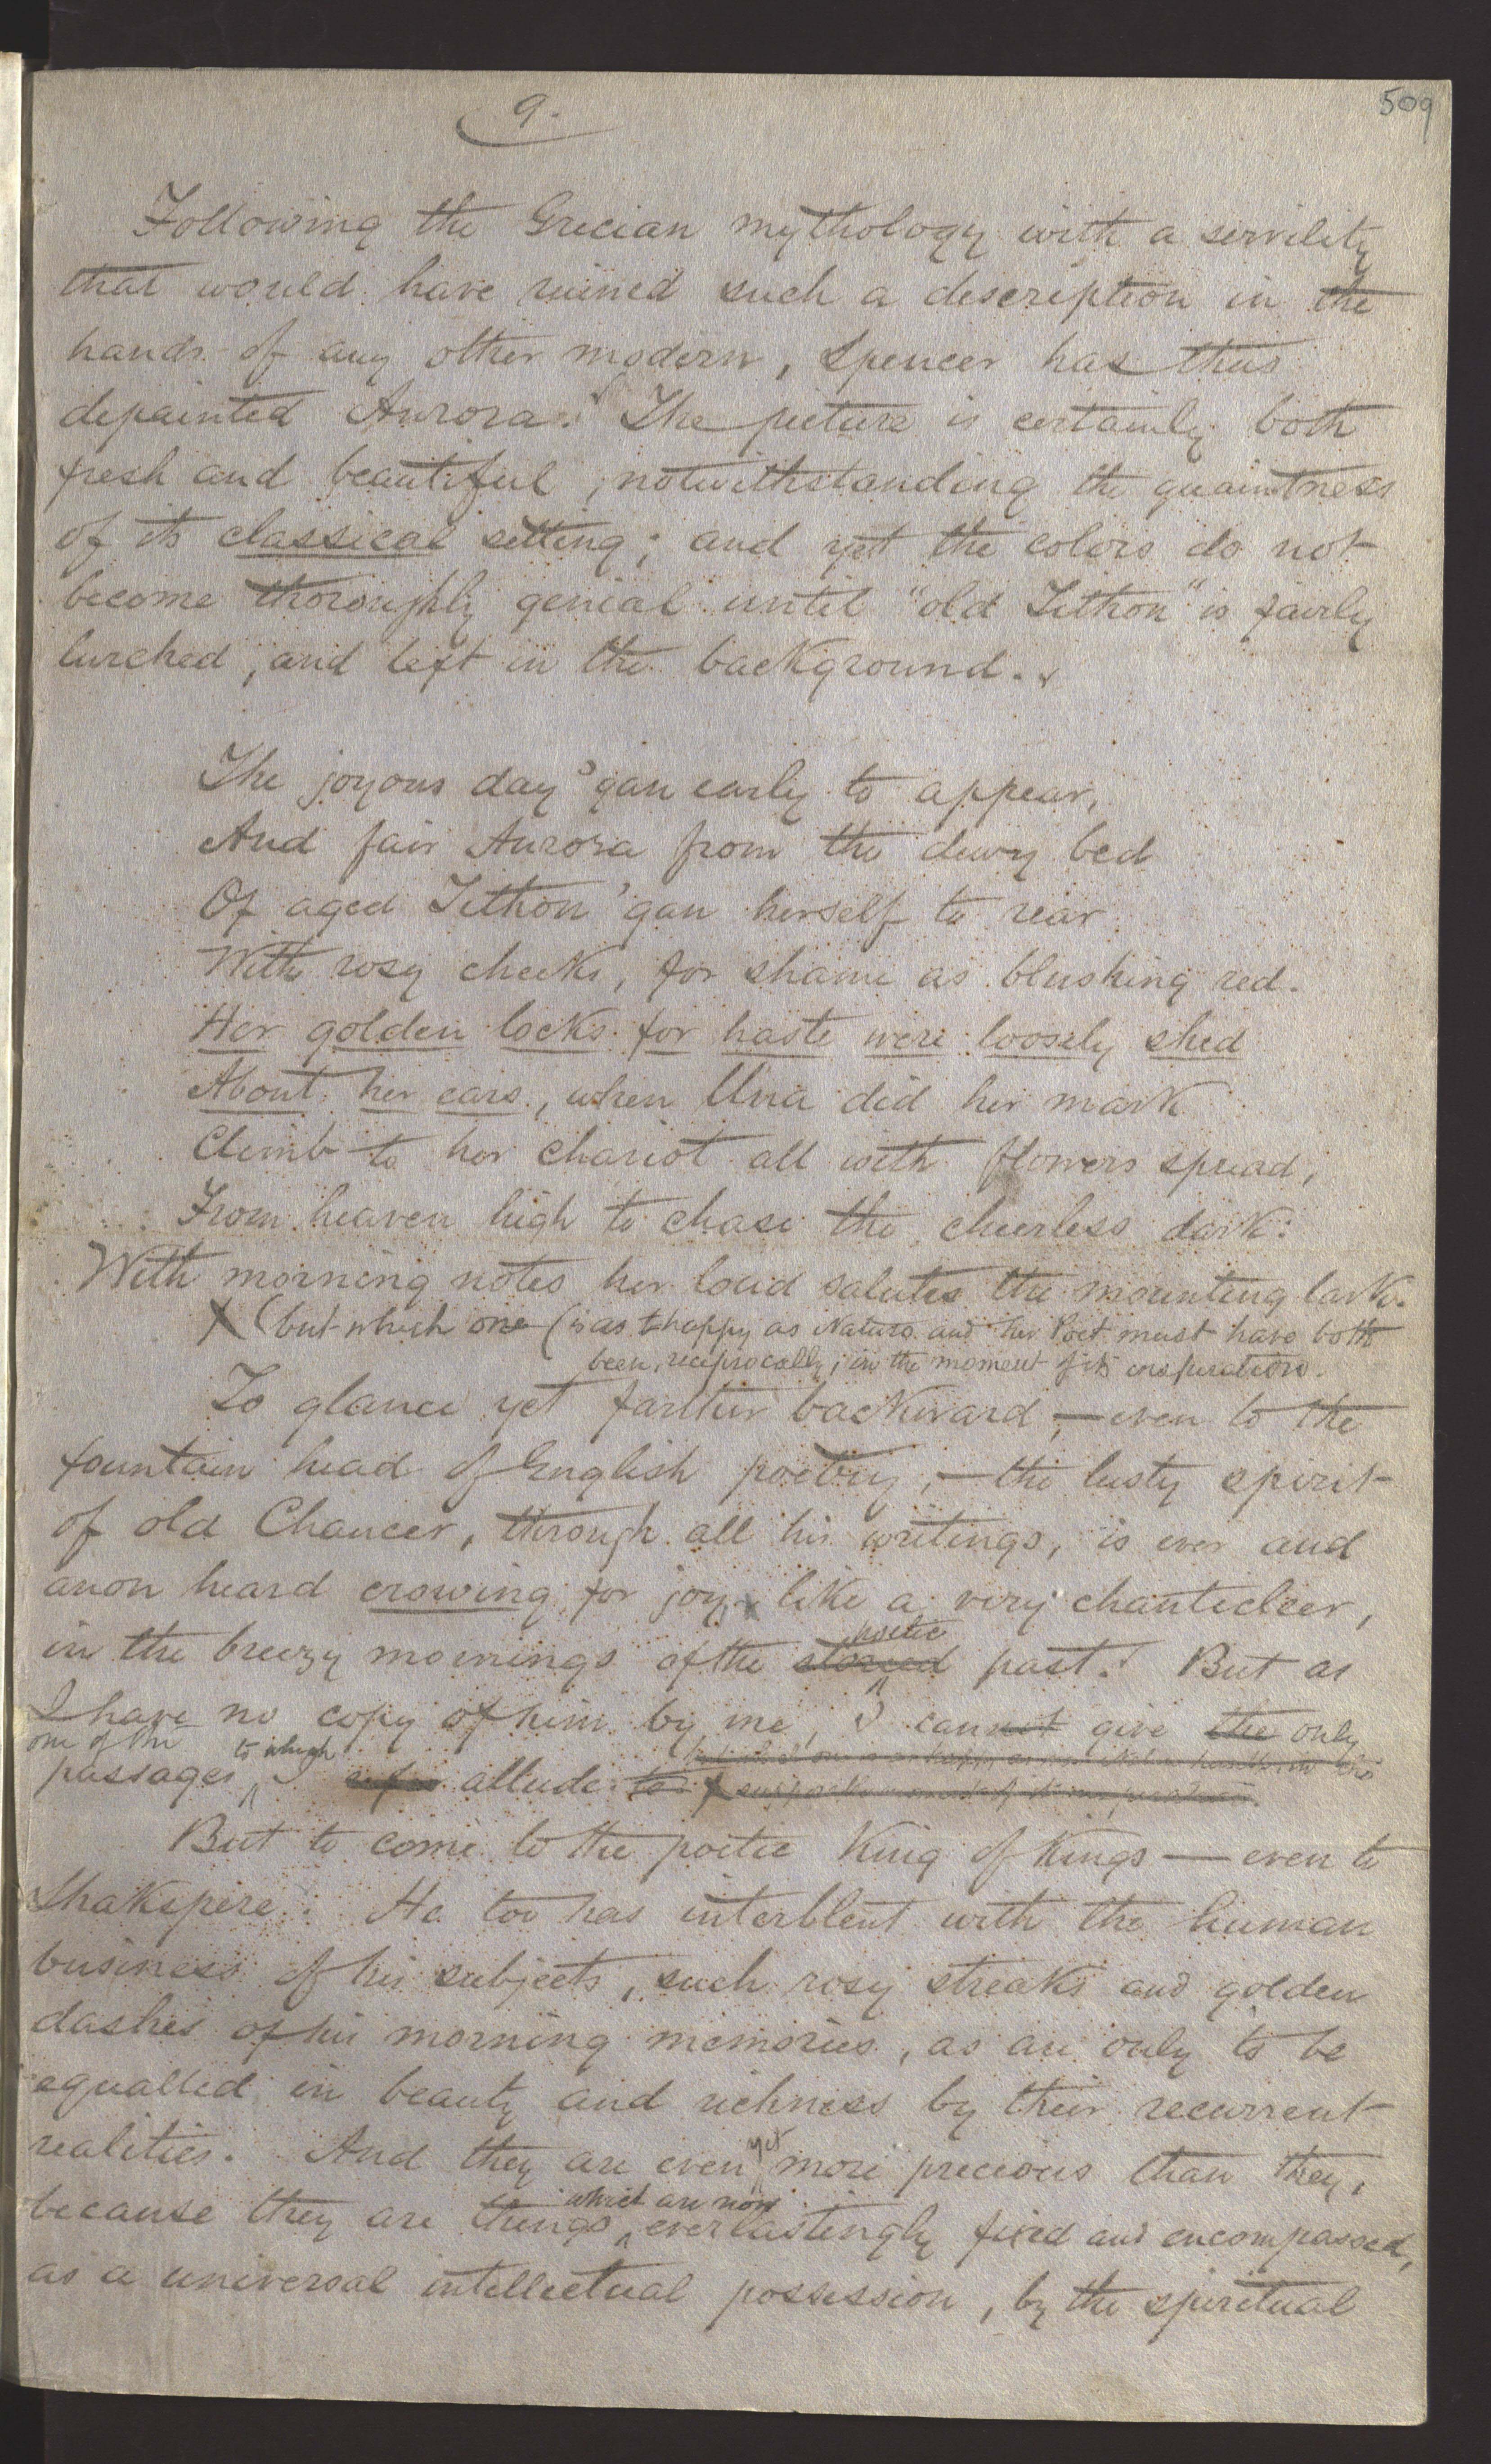 9.
509
Following the Grecian mythology with a servility
that would have ruined such a description in the
hands of any other modern, Spencer has thus
depainted Aurora. The picture is certainly both
fresh and beautiful, notwithstanding the quaintness
of its classical setting; and yet the colors do not
become thoroughly genial until "old Tithon" is fairly
lurched, and left in the background.
The joyous day 'gan early to appear,
And fair Aurora from the dewy bed
Of aged Tithon 'gan herself to rear
With rosy cheeks, for shame as blushing red.
Her golden locks for haste were loosely shed
About her ears, when Una did her mark
Climb to her chariot all with flowers spread,
From heaven high to chase the cheerless dark:
With morning notes her loud salutes the mounting lark.
X (but which one (is as happy as Nature and her Poet must have both
been, reciprocally, in the moment of its inspiration.
To glance yet farther backward,—even to the
fountain head of English poetry,—the lusty spirit
of old Chaucer, through all his writings, is ever and
anon heard crowing for joy, like a very chanticleer,
poetic
in the breezy mornings of the storied past. But as
I have no copy of him by me, I cannot give the only
one of the to which
passages I allude to X
But to come to the poetic King of Kings — even to
Shakspere. He too has interblent with the human
business of his subjects, such rosy streaks and golden
dashes of his morning memories, as are only to be
equalled in beauty and richness by their recurrent
realities. And they are even yet more precious than they,
which are now
because they are things everlastingly fixed and encompassed,
as a universal intellectual possession, by the spiritual